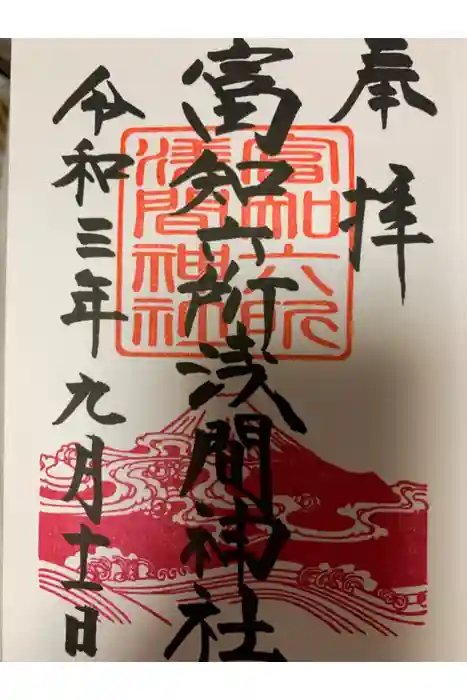 奉拝
富知六所浅間神社
富知六所
浅間神社
令和三年九月十二日